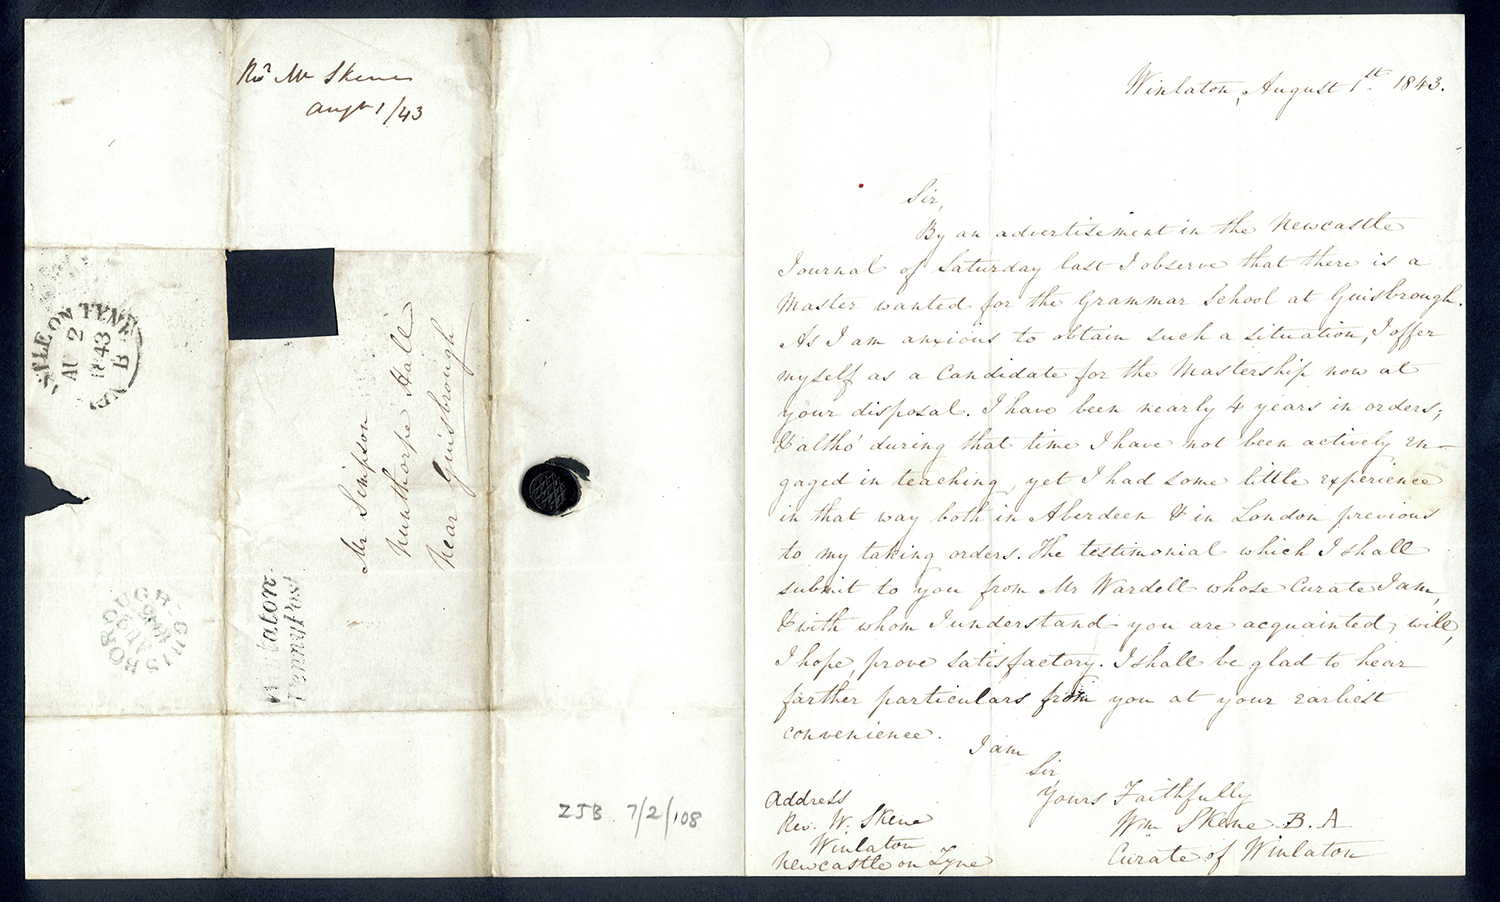 Revd Mr Skene
Augt 1/43
NEWCASTLE ON TYNE
AU 2
1843
B
Mr Simpson
Nunthorpe Hall
Near Guisbrough
Winlaton
Penny Post
GUISBOROUGH
ZJB 7/2/108
Winlaton, August 1st. 1843.
Sir,
By an advertisement in the Newcastle
Journal of Saturday last I observe that there is a
Master wanted for the Grammar School at Guisbrough.
As I am anxious to obtain such a situation, I offer
myself as a Candidate for the Mastership now at
your disposal. I have been nearly 4 years in orders;
& altho' during that time I have not been actively en-
gaged in teaching, yet I had some little experience
in that way both in Aberdeen & in London previous
to my taking orders. The testimonial which I shall
submit to you from Mr Wardell whose Curate I am,
& with whom I understand you are acquainted, will,
I hope, prove satisfactory. I shall be glad to hear
farther particulars from you at your earliest
convenience.
I am
Sir
Yours Faithfully
Wm Skene B.A
Curate of Winlaton
Address
Rev. W. Skene
Winlaton
Newcastle on Tyne